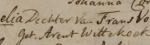 Johanna
elia Dechter van Frans Vo
get. Arent Wittekoek